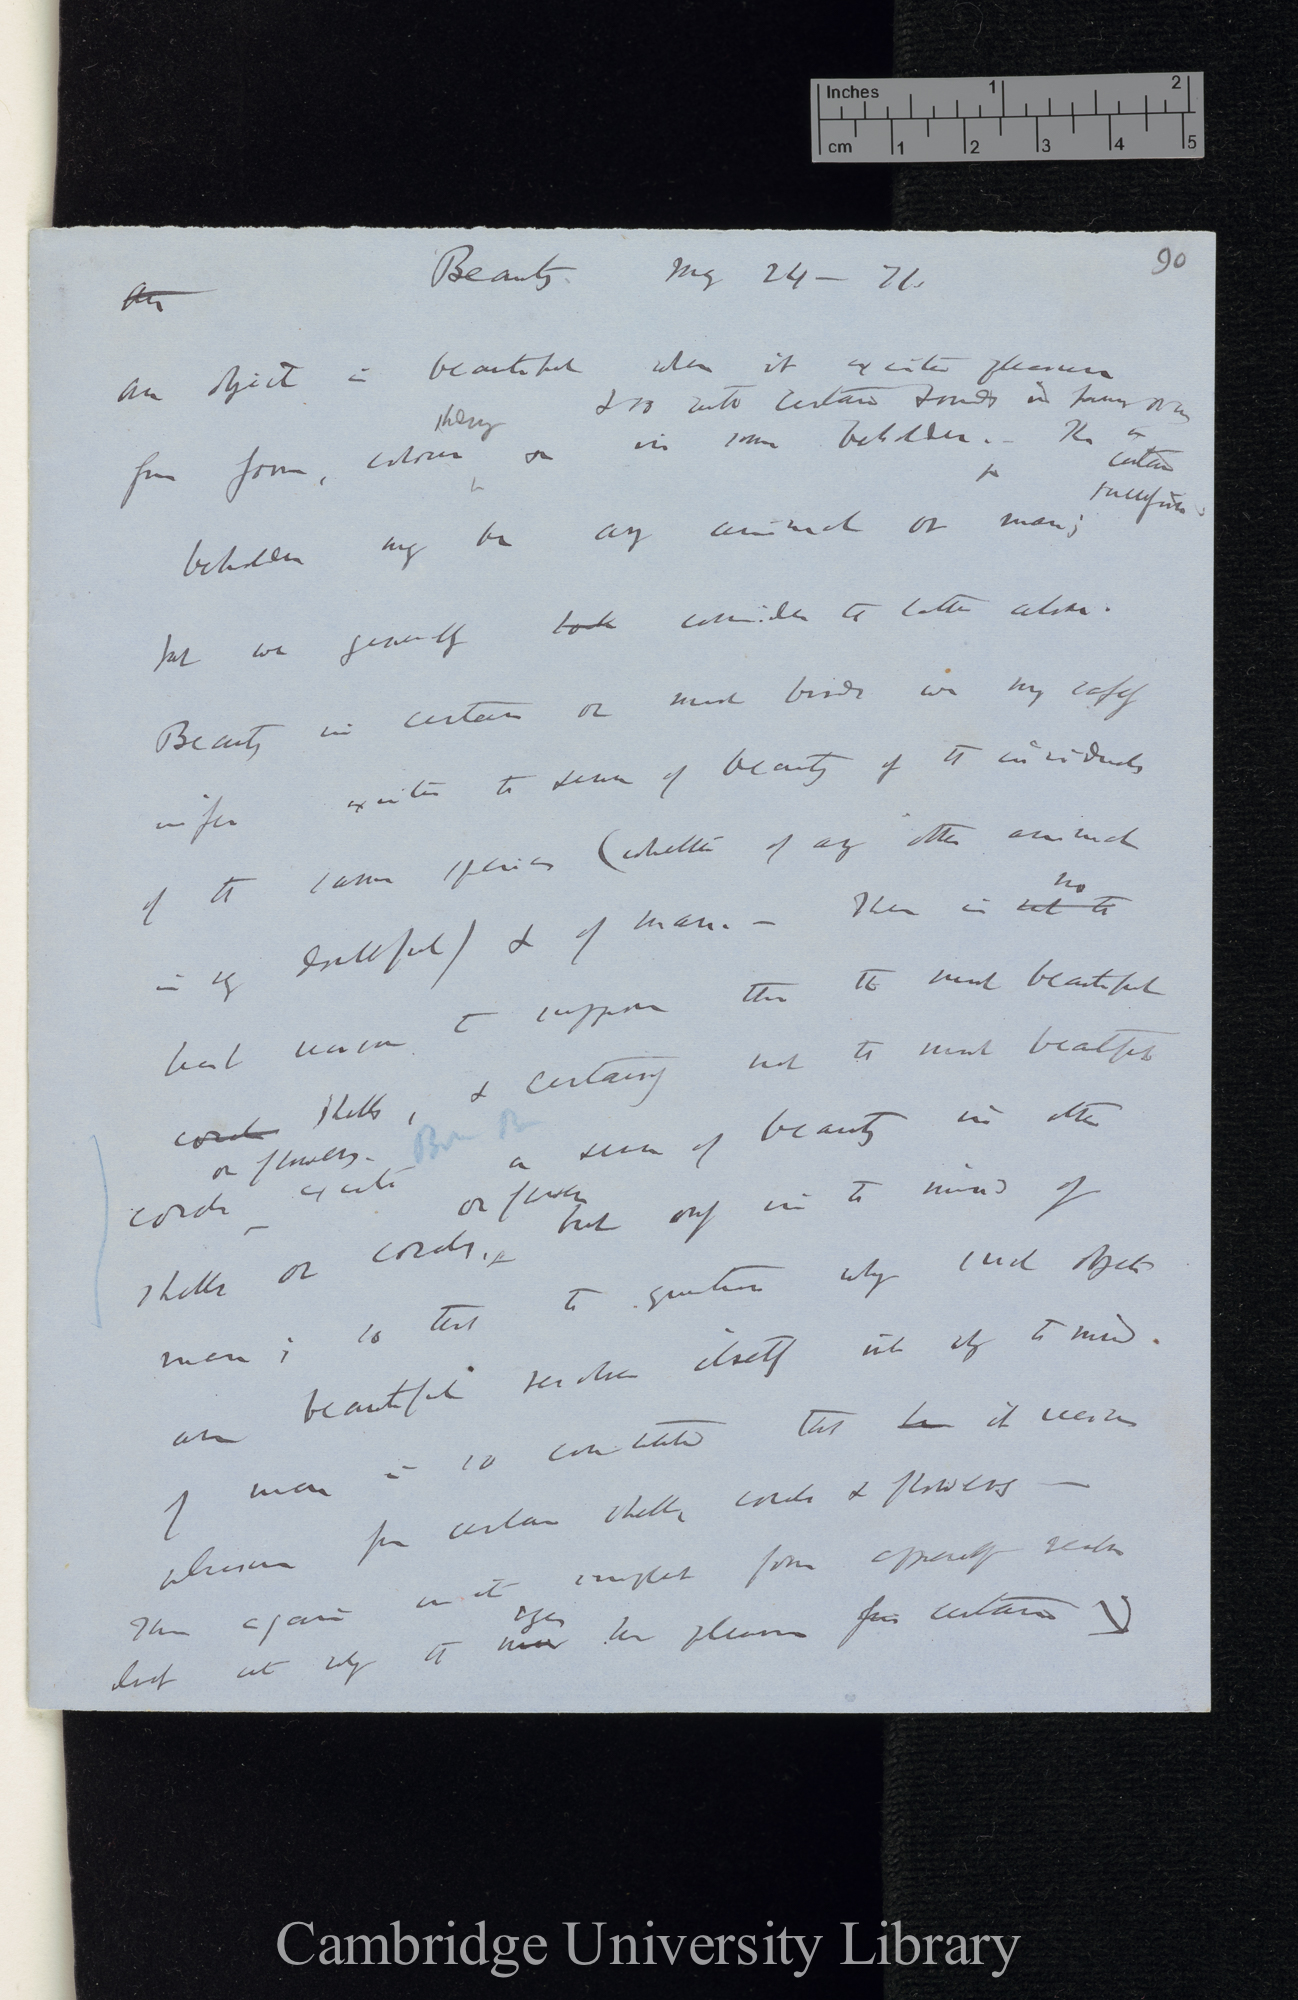 Inches 1 2
cm 1 2 3 4 5
90
Beauty. May 24 — 71.
An
An object is beautiful when it excites pleasure
& so with certain sounds in
from form, colour &c in some beholder. — The
certain
beholder may be any animal or man;
but we generally consider the latter alone.
Beauty in certain or most birds we may safely
infer excites the sense of beauty of the individuals
of the same species (whether of any other animal
is very doubtful) & of man. — There is no
not the
least reason to suppose that the most beautiful
corals shells, & certainly not the most beautiful
or flowers.
corals excite a sense of beauty in other
or flowers
shells or corals, but only in the mind of
man; so that the question why such objects
are beautiful resolves itself into why the mind
of man is so constituted that it receives
pleasure from certain shells, corals & flowers —
This again in its simplest form apparently resolves
eyes
itself into why the pleasure from certain
Cambridge University Library